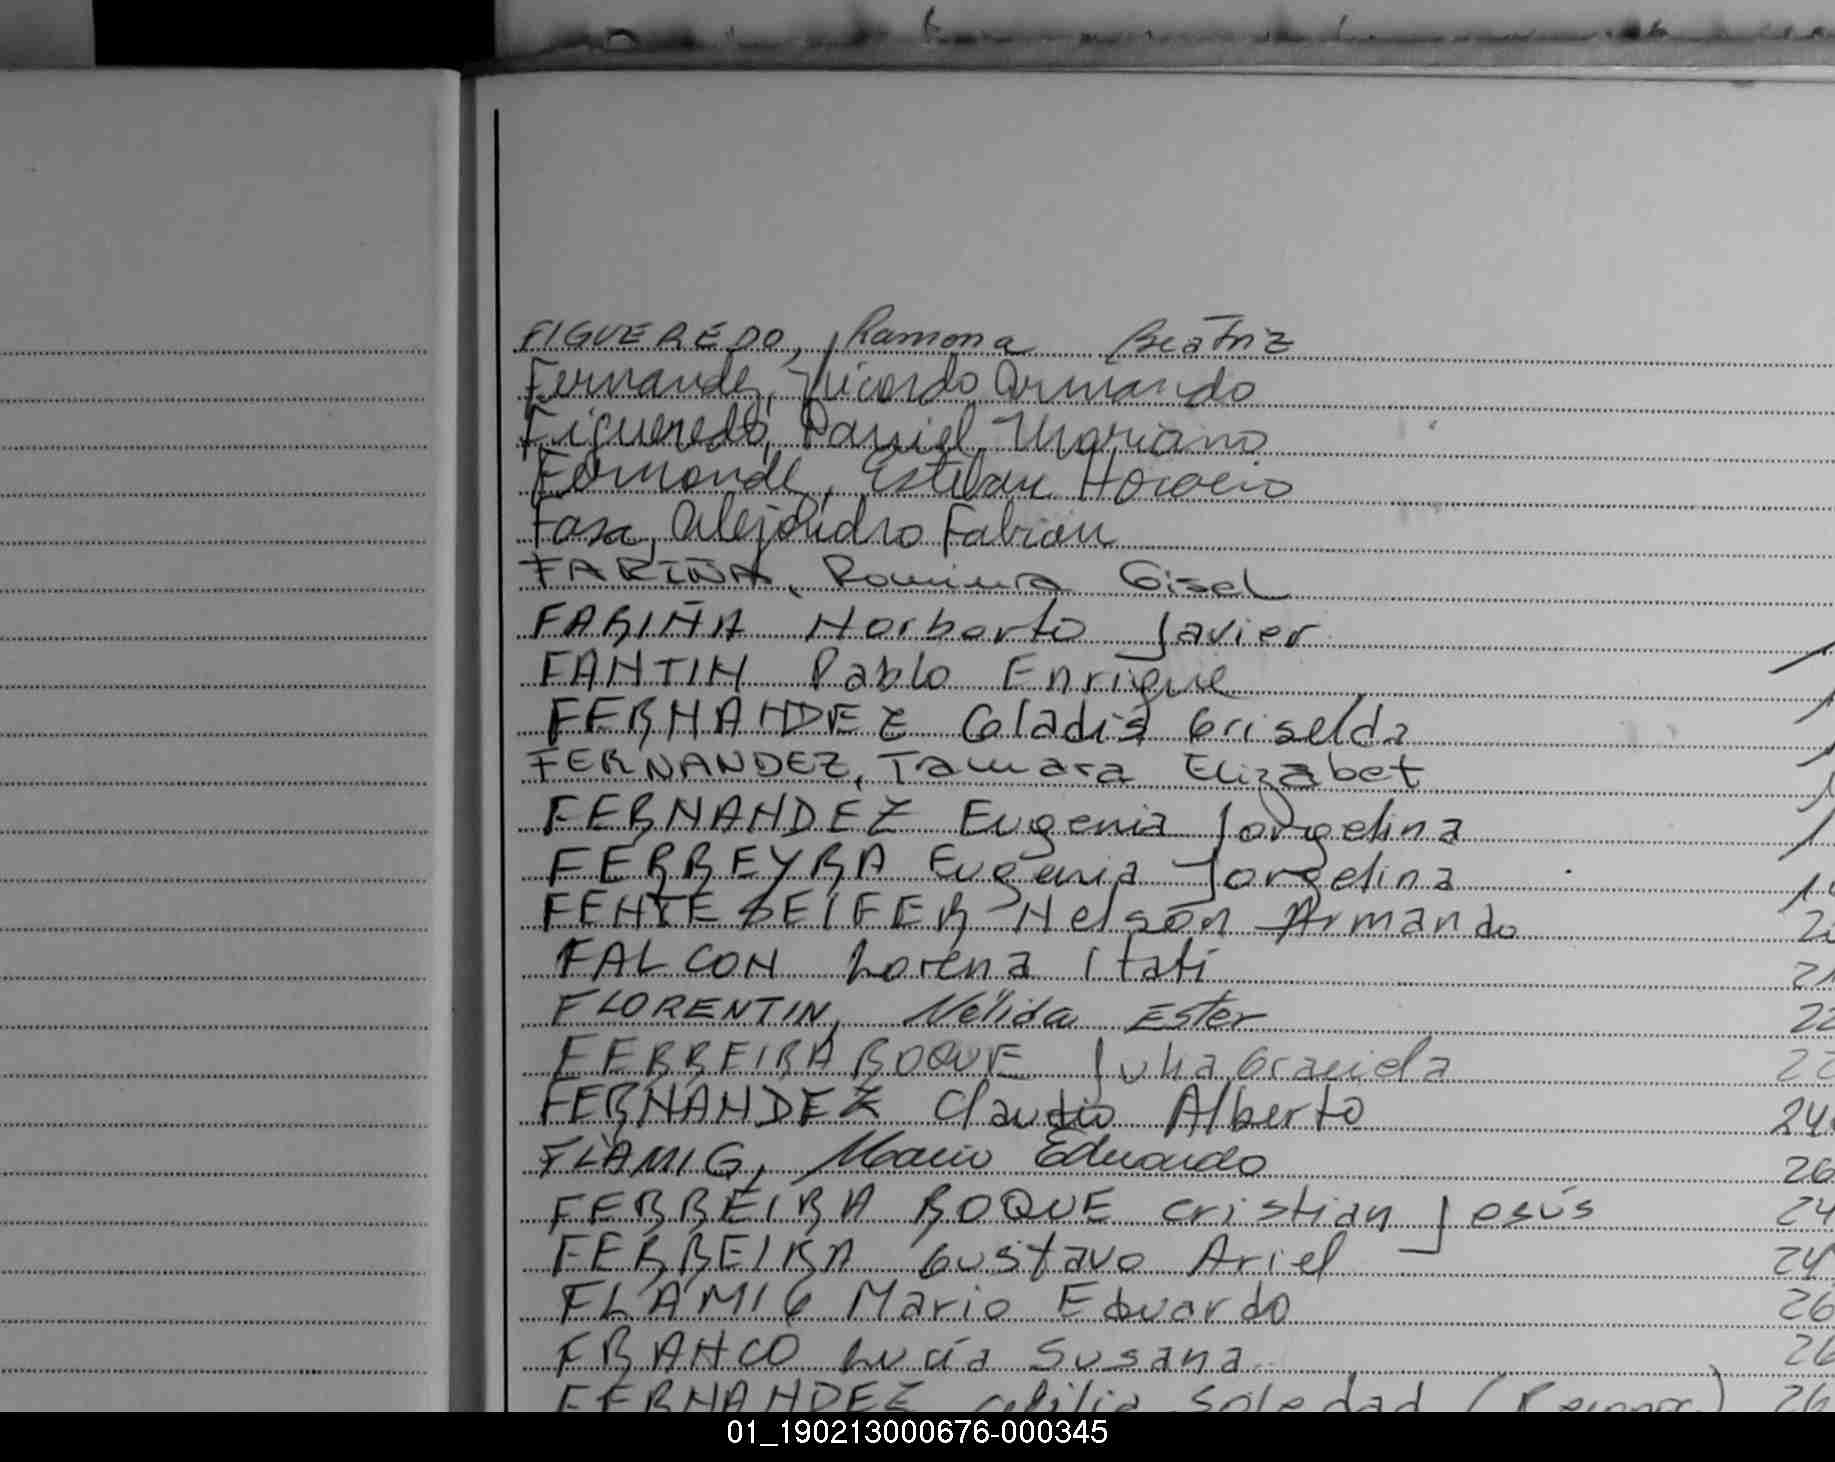 FIGUEREDO, Ramona Beatriz
Fernandez, Ricardo Armando
Figueredo, Daniel Mariano
Fernandez, Esteban Horacio
Alejandro Fabian
FARIÑA, Romina Gisel
FARIÑA Norberto Javier
FANTIN Pablo Enrique
FERNANDEZ Gladis Griselda
FERNANDEZ, Tamara Elizabet
FERNANDEZ Eugenia Jorgelina
FERREYRA Eugenia Jorgelina
Nelson Armando
FALCON Lorena Itatí
FLORENTIN, Nélida Ester 22
FERREIRA ROQUE Julia Graciela
FERNANDEZ Claudio Alberto 24
FLAMIG, Mario Eduardo 26
FERREIRA ROQUE Cristian Jesús 24
FERREIRA Gustavo Ariel 24
FLAMIG Mario Eduardo 26
FRANCO Lucía Susana 26
FERNANDEZ Soledad 26
01_190213000676-000345